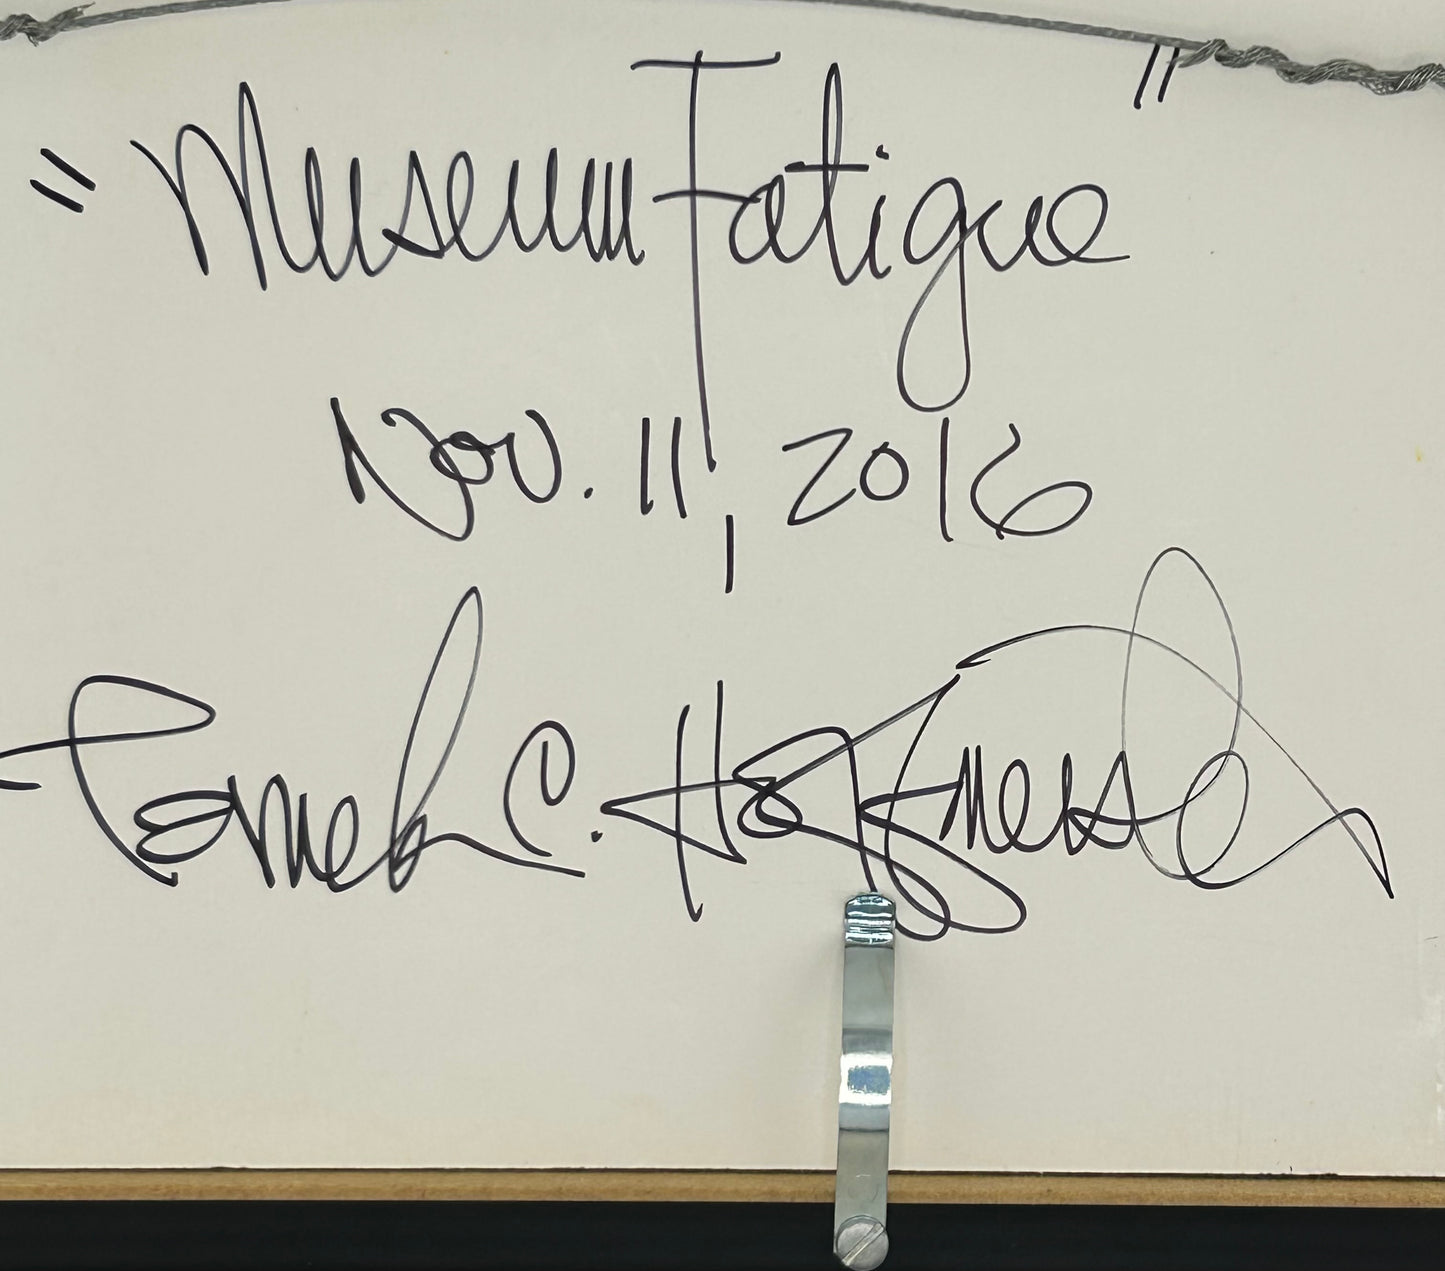 "Museum Fatigue"
Nov. 11, 2016
Pamela C.